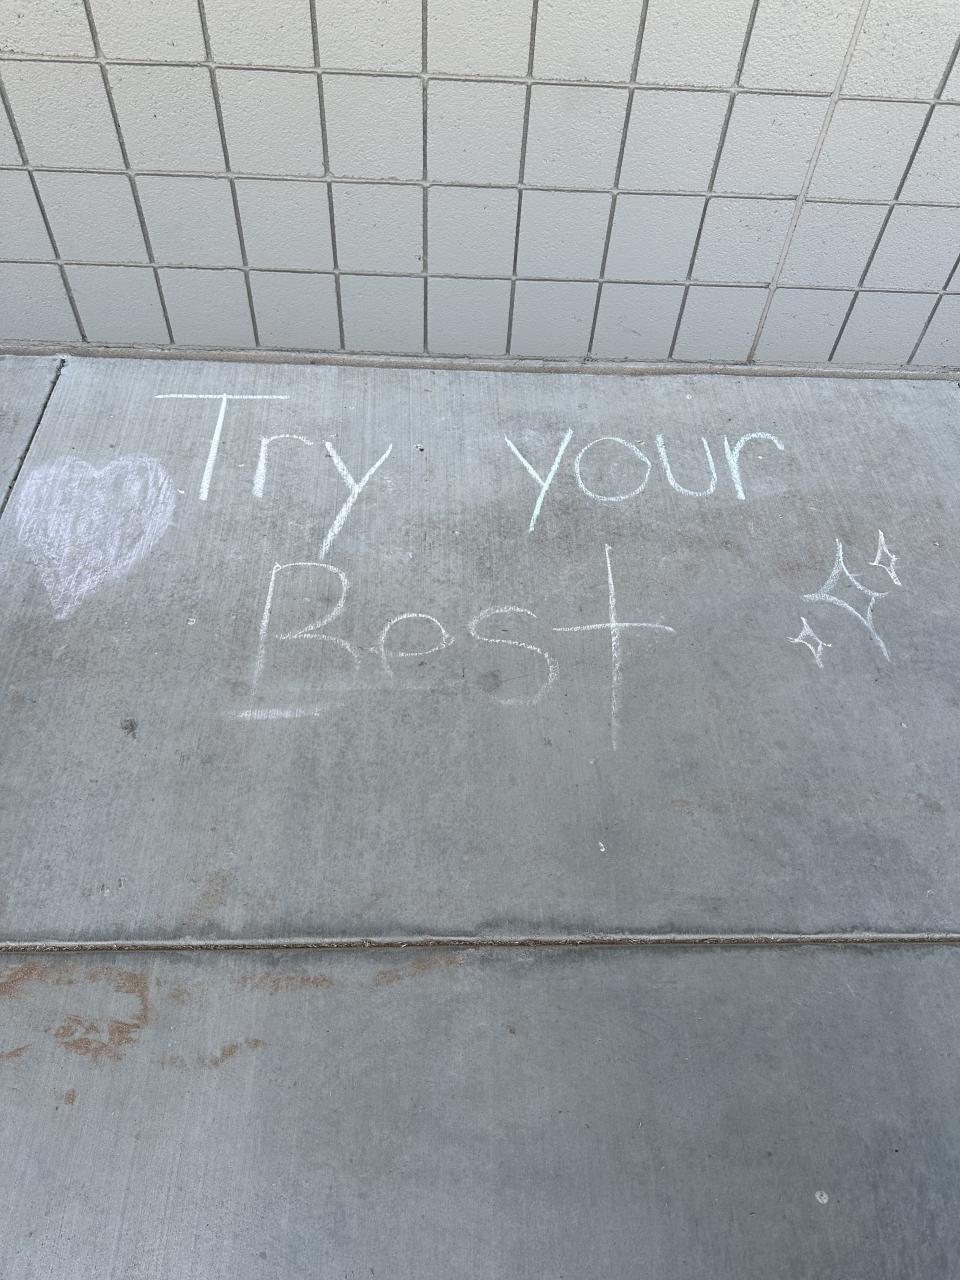 Try your
Best